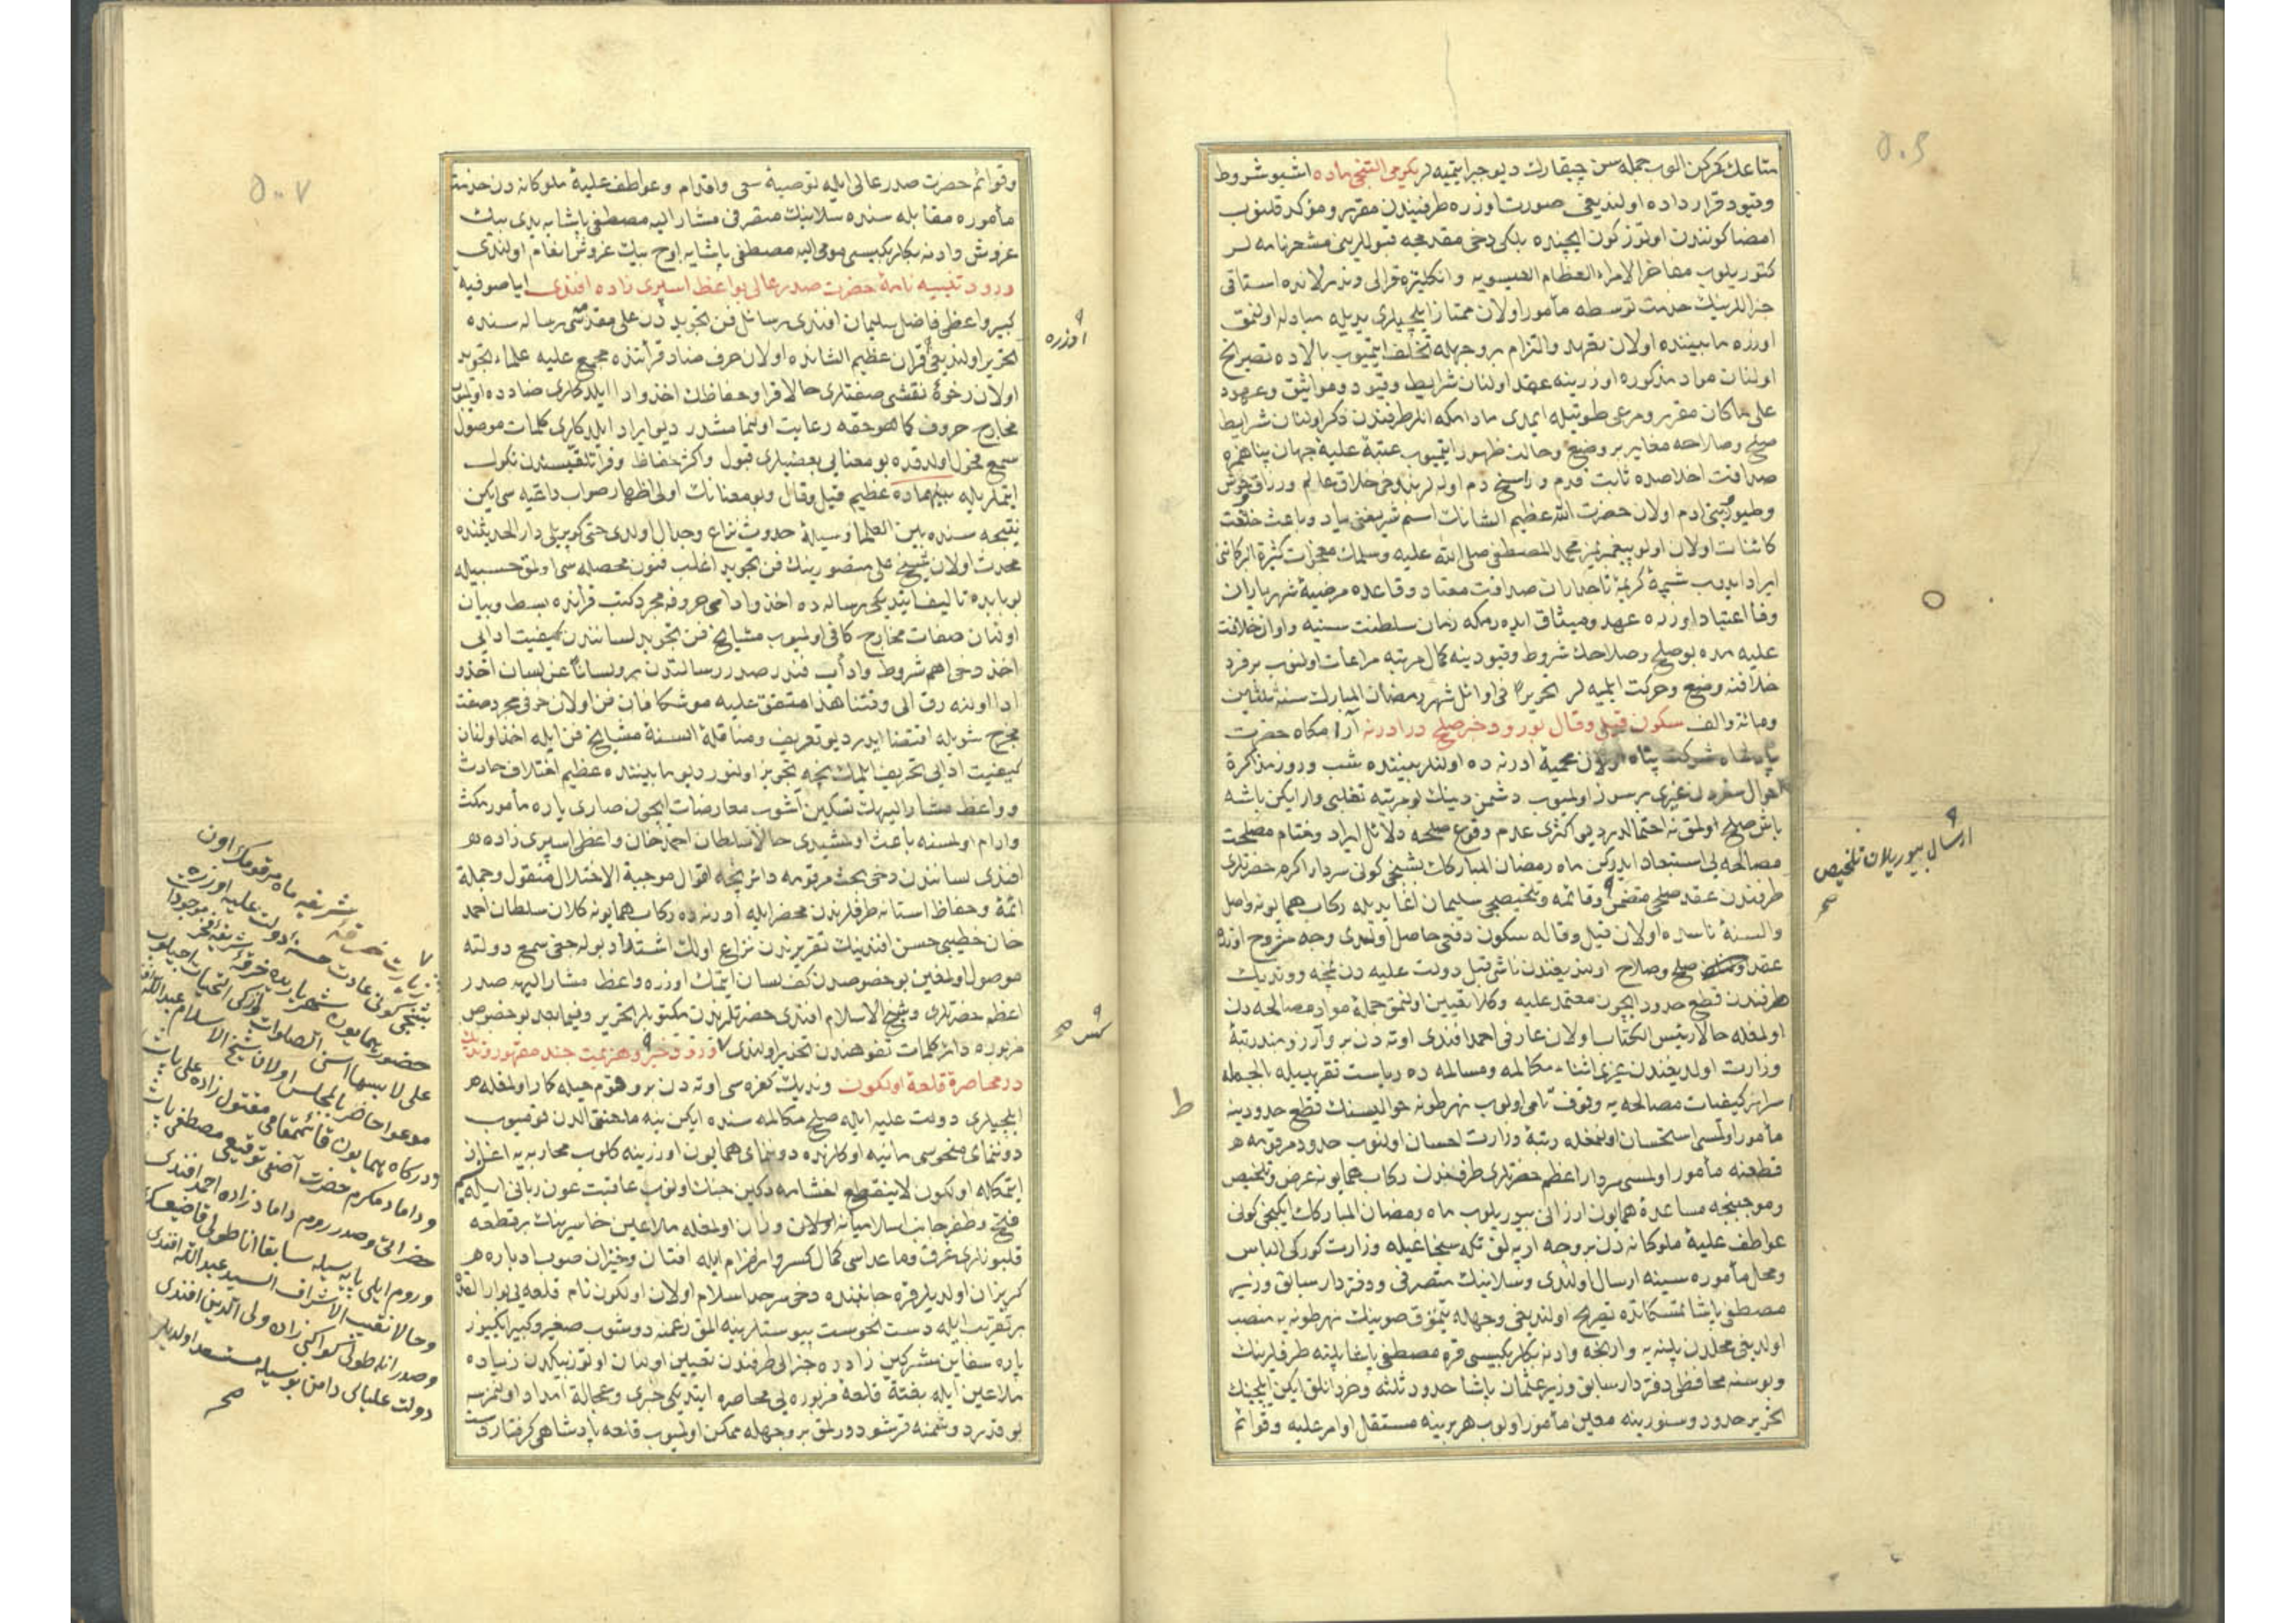 متاعك كركن الوب جمله سن چيقارك ديو جبر ايتميه لر يكرمی التنجی ماده اشبو شروط
وقيود قرار داده اولنديغی صورت اوزره طرفيندن مقرر ومؤكد قلنوب
امضا كونندن اوتوز كون ايچنده بلكه دخی مقدمجه قبوللرينی مشعر نامه لر
كتوريلوب مفاخر الامراء العظام العيسويه وانكليتره قرالی وندرلانده استاتی
جنراللرينك خدمت توسطه مأمور اولان ممتاز ايلچيلری يديله مبادله اولنمق
اوزره مابيننده اولان تعهد والتزام بر وجهله تخلف ايتميوب بالاده تصريح
اولنان مواد مذكوره اوزرينه عهد اولنان شرايط وقيود ومواثيق وعهود
علی ما كان مقرر ومرعی طوتيله ايمدی مادامكه انلر طرفندن ذكر اولنان شرايط
صلح وصلاحه مغاير بر وضع وحالت ظهور ايتميوب عتبۀ عليۀ جهان پناهمزه
صداقت اخلاصده ثابت قدم وراسخ دم اوله لر بز دخی خلاق عالم ورزاق وحوش
وطيور وبنی ادم اولان حضرت الله عظيم الشانك اسم شريفنی ياد وباعث خلقت
كائنات اولان اولو پيغمبريمز محمد المصطفی صلی الله عليه وسلمك معجزات كثيرة البركاتنی
ايراد ايدوب شيمۀ كريمۀ تاجداران صداقت معتاد وقاعده مرضيۀ شهرياران
وفا اعتياد اوزره عهد وميثاق ايده رمكه زمان سلطنت سنيه واوان خلافت
عليه مده بو صلح وصلاحك شروط وقيودينه كمال مرتبه مراعات اولنوب بر فرد
خلافنه وضع وحركت ايلميه لر تحريرا فی اوائل شهر رمضان المبارك سنه ثلثين
ومائة والف سكون قيل وقال بورود خبر صلح در ادرنه آرامكاه حضرت
پادشاه شوكت پناه اولان محميۀ ادرنه ده اولنلر بيننده شب وروز مذاكرۀ
احوال سفردن غيری بر سوز اولميوب دشمن دينك بو مرتبه تغلبی وار ايكن باشه
باش صلح اولمق نه احتمالدر ديو اكثری عدم وقوع صلحه دلائل ايراد وختام مصلحت
مصالحه يی استبعاد ايدركن ماه رمضان المباركك بشنجی كونی سردار اكرم حضرتلری
طرفندن عقد صلحی متضمن وقائمه وتلخيصجی سليمان اغا يديله ركاب همايونه واصل
والسنۀ ناسده اولان قيل وقاله سكون دفعی حاصل اولندی وجه مشروح اوزره
عقد صلح وصلاح اولنديغندن ناشی قبل دولت عليه دن نمچه وونديك
طرفندن قطع حدود ايچون معتمد عليه وكلا تعيين اولنمق جملۀ مواد مصالحه دن
اولمغله حالا رئيس الكتاب اولان عارفی احمد افندی اوته دن برو آرزومند رتبۀ
وزارت اولديغندن غيری اثناء مكالمه ومسالمه ده رياست تقريبيله بالجمله
سراير كيفيات مصالحه يه وقوف تامی اولوب نهر طونه حواليسنك قطع حدودينه
مأمور اولمسی استحسان اولنمغله رتبۀ وزارت احسان اولنوب حدود مرقومه
قطعنه مأمور اولمسی سردار اعظم حضرتلری طرفندن ركاب همايونه عرض وتلخيص
وموجبنجه مساعدۀ همايون ارزانی بيوريلوب ماه رمضان المباركك ايكنجی كونی
عواطف عليۀ ملوكانه دن بر وجه ارپه لق تكه سنجاغيله وزارت كوركی الباس
ومحل مأموره سينه ارسال اولندی وسلانيك متصرفی ودفتردار سابق وزير
مصطفی پاشا متمسكاتده تصريح اولنديغی وجهله تيموق صوينك نهر طونه يه منصب
اولديغی محلدن پلنه يه وارنجه وادنه بكلربكيسی قره مصطفی پاشا پلنه طرفلرينك
وبوسنه محافظی دفتردار سابق وزير عثمان پاشا حدود ثلثه وخردانلق ايكن ايلچينك
تحرير حدود وسنورينه معين مأمور اولوب هر برينه مستقل اوامر عليه وقوائم
ارسال بيوريلان تلخيص
صح
وقوائم حضرت صدر عالی ايله توصيۀ سعی واقدام وعواطف عليۀ ملوكانه دن خدمت
مأموره مقابله سنده سلانيك متصرفی مشار اليه مصطفی پاشايه يدی بيك
غروش وادنه بكلربكيسی مومی اليه مصطفی پاشايه اوچ بيك غروش انعام اولندی
ورود تنبيه نامۀ حضرت صدر عالی بواعظ اسپری زاده افندی اياصوفيه
كبير واعظی فاضل سليمان افندی رسائل فن تجويددن علی مقدسی رساله سنده
تحرير اولنديغی قران عظيم الشانده اولان حرف ضاد قرأتنده مجمع عليه علماء تجويد
اولان رخوۀ تفشی صفتلری حالا قرا وحفاظك اخذ وادا ايلدكلری ضادده اولميوب
مخارج حروف كما هو حقه رعايت اولنمامشدر ديو ايراد ايلدكلری كلمات موصول
سمع فحول اولدقده بو معنايی بعضيلری قبول واكثر حفاظ وقرا تلقيسندن نكول
ايتملريله بينهماده عظيم قيل وقال وبو معنانك اولی اظهار صواب داعيه سی ايكن
نتيجه سنده بين العلما وسيلۀ حدوث نزاع وجدال اولدی حتی كوپريلی دار الحديثنده
محدث اولان شيخ علی منصورينك فن تجويد اغلب فنون محصله سی اولمق حسبيله
بو بابده تاليف ايتديكی رساله ده اخذ وادای حروفه مجرد كتب قرأنده بسط وبيان
اولنان صفات مخارج كافی اولميوب مشايخ فن تجويد لساننندن كيفيت ادايی
اخذ دخی اهم شروط وآداب فندر صدر رسالتدن برو لسانا عن لسان اخذ و
ادا اولنه رق الی وقتنا هذا متفق عليه موشكافان فن اولان حرفی مجرد صفت
مخرج شويله اقتضا ايدر ديو تعريف ومناقلۀ السنۀ مشايخ فن ايله اخذ اولنان
كيفيت ادايی تحريف ايلمك نيجه تجويز اولنور ديو مابيننده عظيم اختلاف حادث
وواعظ مشار اليهك تسكين آشوب معارضات ايچون صاری ياره مأمور مكث
وارام اولمسنه باعث اولمشيدی حالا سلطان احمد خان واعظی اسپری زاده
افندی لساننندن دخی بحث مرقومه دائر نيجه اقوال موجبة الاختلال منقول وجملۀ
ائمۀ وحفاظ استانه طرفلرندن محضر ايله ادرنه ده ركاب همايونه كلان سلطان احمد
خان خطيبی حسن افندينك تقريرندن نزاع اولك اشتداد بوله جغی سمع دولته
موصول اولمغين بو خصوصدن كف لسان ايتمك اوزره واعظ مشار اليهه صدر
اعظم حضرتلری وشيخ الاسلام افندی حضرتلرندن مكتوبلر تحرير وفيما بعد بو خصوص
مزبوره دائر كلمات تفوهندن تحذير اولندی ورود خبر وهزيمت جند مقهور ونديك
در محاصرۀ قلعۀ اولكون ونديك كفره سی اوته دن برو قوم حيله كار اولمغله
ايلچيلری دولت عليه ايله صلح مكالمه سنده ايكن ينه ما تحتنی الدن قوميوب
دوننمای منحوسی مانيه اوكلرنده دوننمای همايون اوزرينه كلوب محاربه يه اغاز
ايتمكله اولكون لاينقطع اخشامه دكين جنك اولنوب عاقبت عون ربانی ايله نسيم
فتح وظفر جانب اسلاميانه اولان وزان اولمغله ملاعين خاسرينك بر قطعه
قليونلری غرق وماعداسی كمال كسر وانهزام ايله افتان وخيزان صوب ادباره
كريزان اولديلر قره جانبنده دخی سرحد اسلام اولان اولكون نام قلعه يی بوار القدر
بر تقريب ايله دست نحوست پيوستلرينه المق زعمنه دوشوب صغير وكبير ايكيوز
پاره سفاين مشركين زادره جنرالی طرفندن تعيين اولنان اوتوز بيكدن زياده
ملاعين ايله بغتة قلعۀ مزبوره يی محاصره ايتديكی خبری وعجالة امداد اولنمزسه
بو قدر دشمنه قرشو دورلمق بر وجهله ممكن اولميوب قلعه پادشاهی كرفتار دست
اوزره
كس صح
ط
زيارت خرقۀ شريفه ماه مرقومك اون
بشنجی كونی عادت حسنۀ دولت عليه اوزره
حضور همايون شهرياريده خرقۀ شريفۀ فخر موجودات
علی لابسها اسنی الصلوات وازكی التحيات اچيلوب
موعوا حاضر بالمجلس اولان شيخ الاسلام عبدالله افندی
ودركاه همايون قائممقامی مقتول زاده علی پاشا
وداماد مكرم حضرت آصفی توقيعی مصطفی پاشا
حضراتی وصدر روم داماد زاده احمد افندی
وروم ايلی پايه سيله سابقا اناطولی قاضيعسكری
وحالا نقيب الاشراف السيد عبدالله افندی
وصدر اناطولی كواكبی زاده ولی الدين افندی
دولت عليای دامن بوسيله مستسعد اولديلر
صح